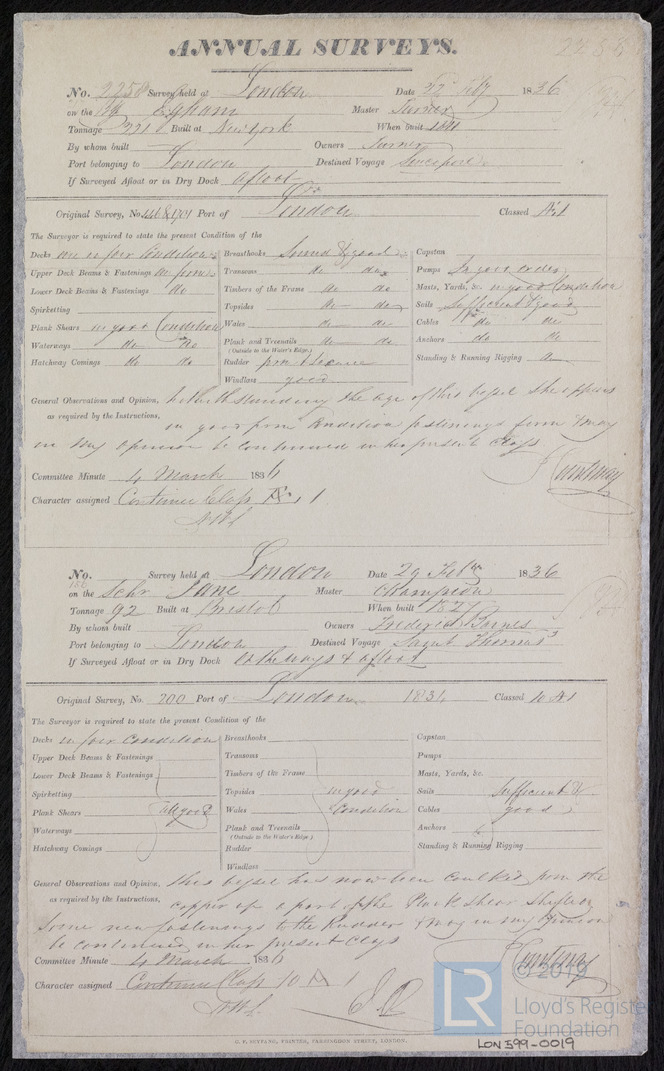 ANNUAL SURVEYS.
No. 2258 Survey held at London Date Feby 1836
on the Egham Master Turner
Tonnage Built at New York When built
By whom built Owners Turner
Port belonging to London Destined Voyage
If Surveyed Afloat or in Dry Dock afloat
Original Survey, No. Port of London Classed
The Surveyor is required to state the present Condition of the
Decks are in fair Condition Breasthooks Sound & good Capstan
Upper Deck Beams & Fastenings Transoms do do Pumps In good order
Lower Deck Beams & Fastenings do Timbers of the Frame do do Masts, Yards, &c. in good Condition
Spirketting Topsides do do Sails Sufficient & good
Plank Shears in good Condition Wales do do Cables do do
Waterways do do Plank and Treenails do do Anchors do do
(Outside to the Water's Edge.)
Hatchway Comings do do Rudder Standing & Running Rigging do
Windlass good
General Observations and Opinion, Notwithstanding the age of this vessel she appears
as required by the Instructions, in good firm Condition fastenings firm & may
in my opinion be Continued in her present Class
Courtenay
Committee Minute 4 March 1836
Character assigned Continue Class 1
No. Survey held at London Date 29 Feby 1836
on the Schr Jane Master Champion
Tonnage 92 Built at Bristol When built 1827
By whom built Owners Frederick
Port belonging to London Destined Voyage Saint Thomas's
If Surveyed Afloat or in Dry Dock On the ways & afloat
Original Survey, No. 200 Port of London 1834 Classed 10 A1
The Surveyor is required to state the present Condition of the
Decks in fair Condition Breasthooks Capstan
Upper Deck Beams & Fastenings Transoms Pumps
Lower Deck Beams & Fastenings Timbers of the Frame Masts, Yards, &c.
Spirketting Topsides in good Sails Sufficient &
Plank Shears All good Wales Condition Cables good
Waterways Plank and Treenails Anchors
(Outside to the Water's Edge.)
Hatchway Comings Rudder Standing & Running Rigging
Windlass
General Observations and Opinion, This vessel has now been Caulked from the
as required by the Instructions, copper up a part of the Plank Shear
Some new fastenings to the Rudder & may in my Opinion
be Continued in her present Class
Courtenay
Committee Minute 4 March 1836
Character assigned Continue Class 10 A 1
© 2019
LR
Lloyd's Register
Foundation
LON 399-0019